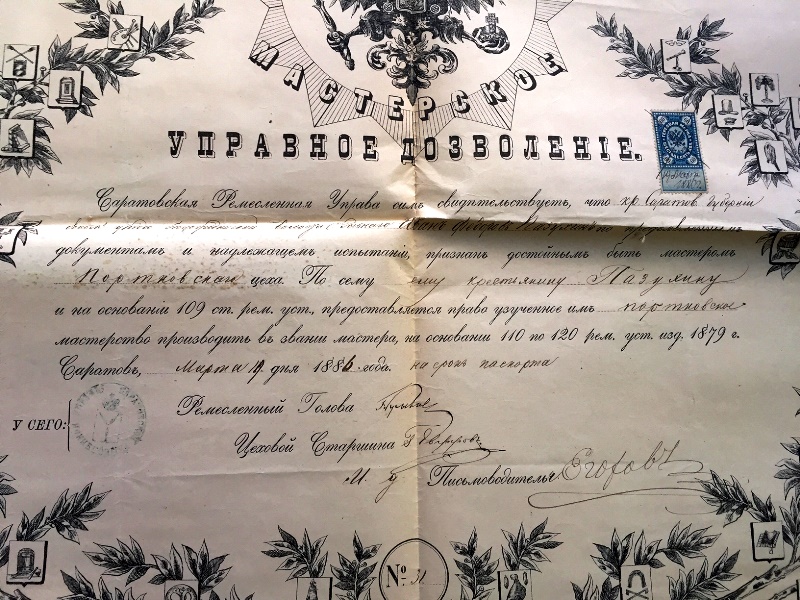 МАСТЕРСКОЕ
УПРАВНОЕ ДОЗВОЛЕНІЕ.
Саратовская Ремесленная Управа симъ свидѣтельствуетъ, что кр. Саратов. Губерніи
документамъ и надлежащемъ испытаніи, признанъ достойнымъ быть мастеромъ
Портновскаго цеха. По сему ему крестьянину Пазухину
и на основаніи 109 ст. рем. уст., предоставляется право изученное имъ портновское
мастерство производить въ званіи мастера, на основаніи 110 по 120 рем. уст. изд. 1879 г.
Саратовъ, Марта дня 1886 года. на срокъ паспорта
У СЕГО:
Ремесленный Голова
Цеховой Старшина
И. д. Письмоводителя Егоровъ
№ 31